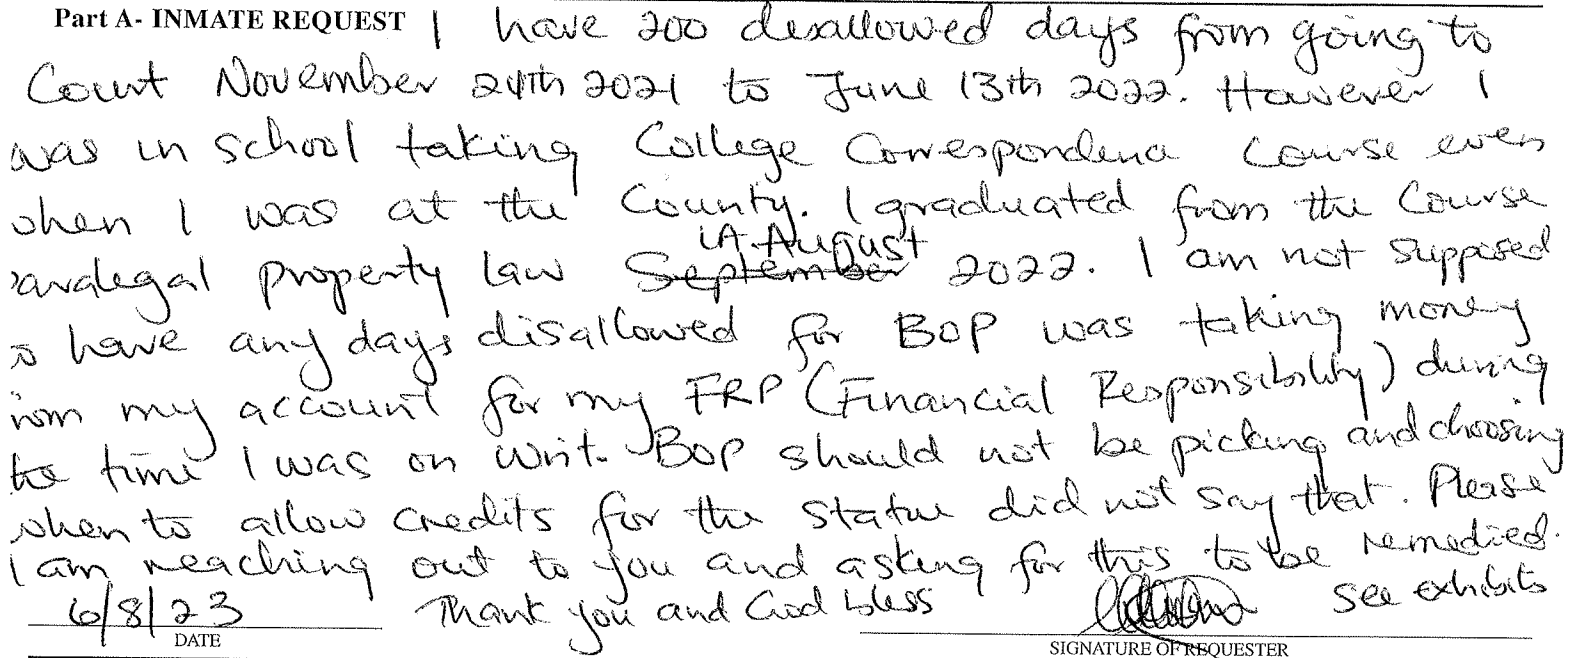 Part A- INMATE REQUEST I have 200 disallowed days from going to
Court November 24th 2021 to June 13th 2022. However I
was in school taking College Correspondence Course even
when I was at the County. I graduated from the Course
in August
paralegal property law September 2022. I am not supposed
to have any days disallowed for BOP was taking money
from my account for my FRP (Financial Responsibility) during
the time I was on writ. BOP should not be picking and choosing
when to allow credits for the statue did not say that. Please
I am reaching out to you and asking for this to be remedied.
6/8/23 Thank you and God bless see exhibits
DATE
SIGNATURE OF REQUESTER